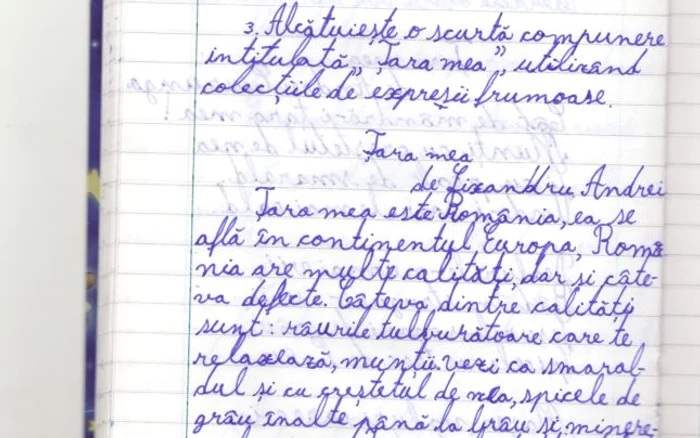 3. Alcătuiește o scurtă compunere
intitulată „Țara mea”, utilizând
colecțiile de expresii frumoase.
Țara mea
de Lixandru Andrei
Țara mea este România, ea se
află în continentul Europa, Româ
nia are multe calități, dar și câte-
va defecte. Câteva dintre calități
sunt: râurile tulburătoare care te
relaxează, munții verzi ca smaral-
dul și cu creștetul de nea, spicele de
grâu înalte până la brâu și, minere-